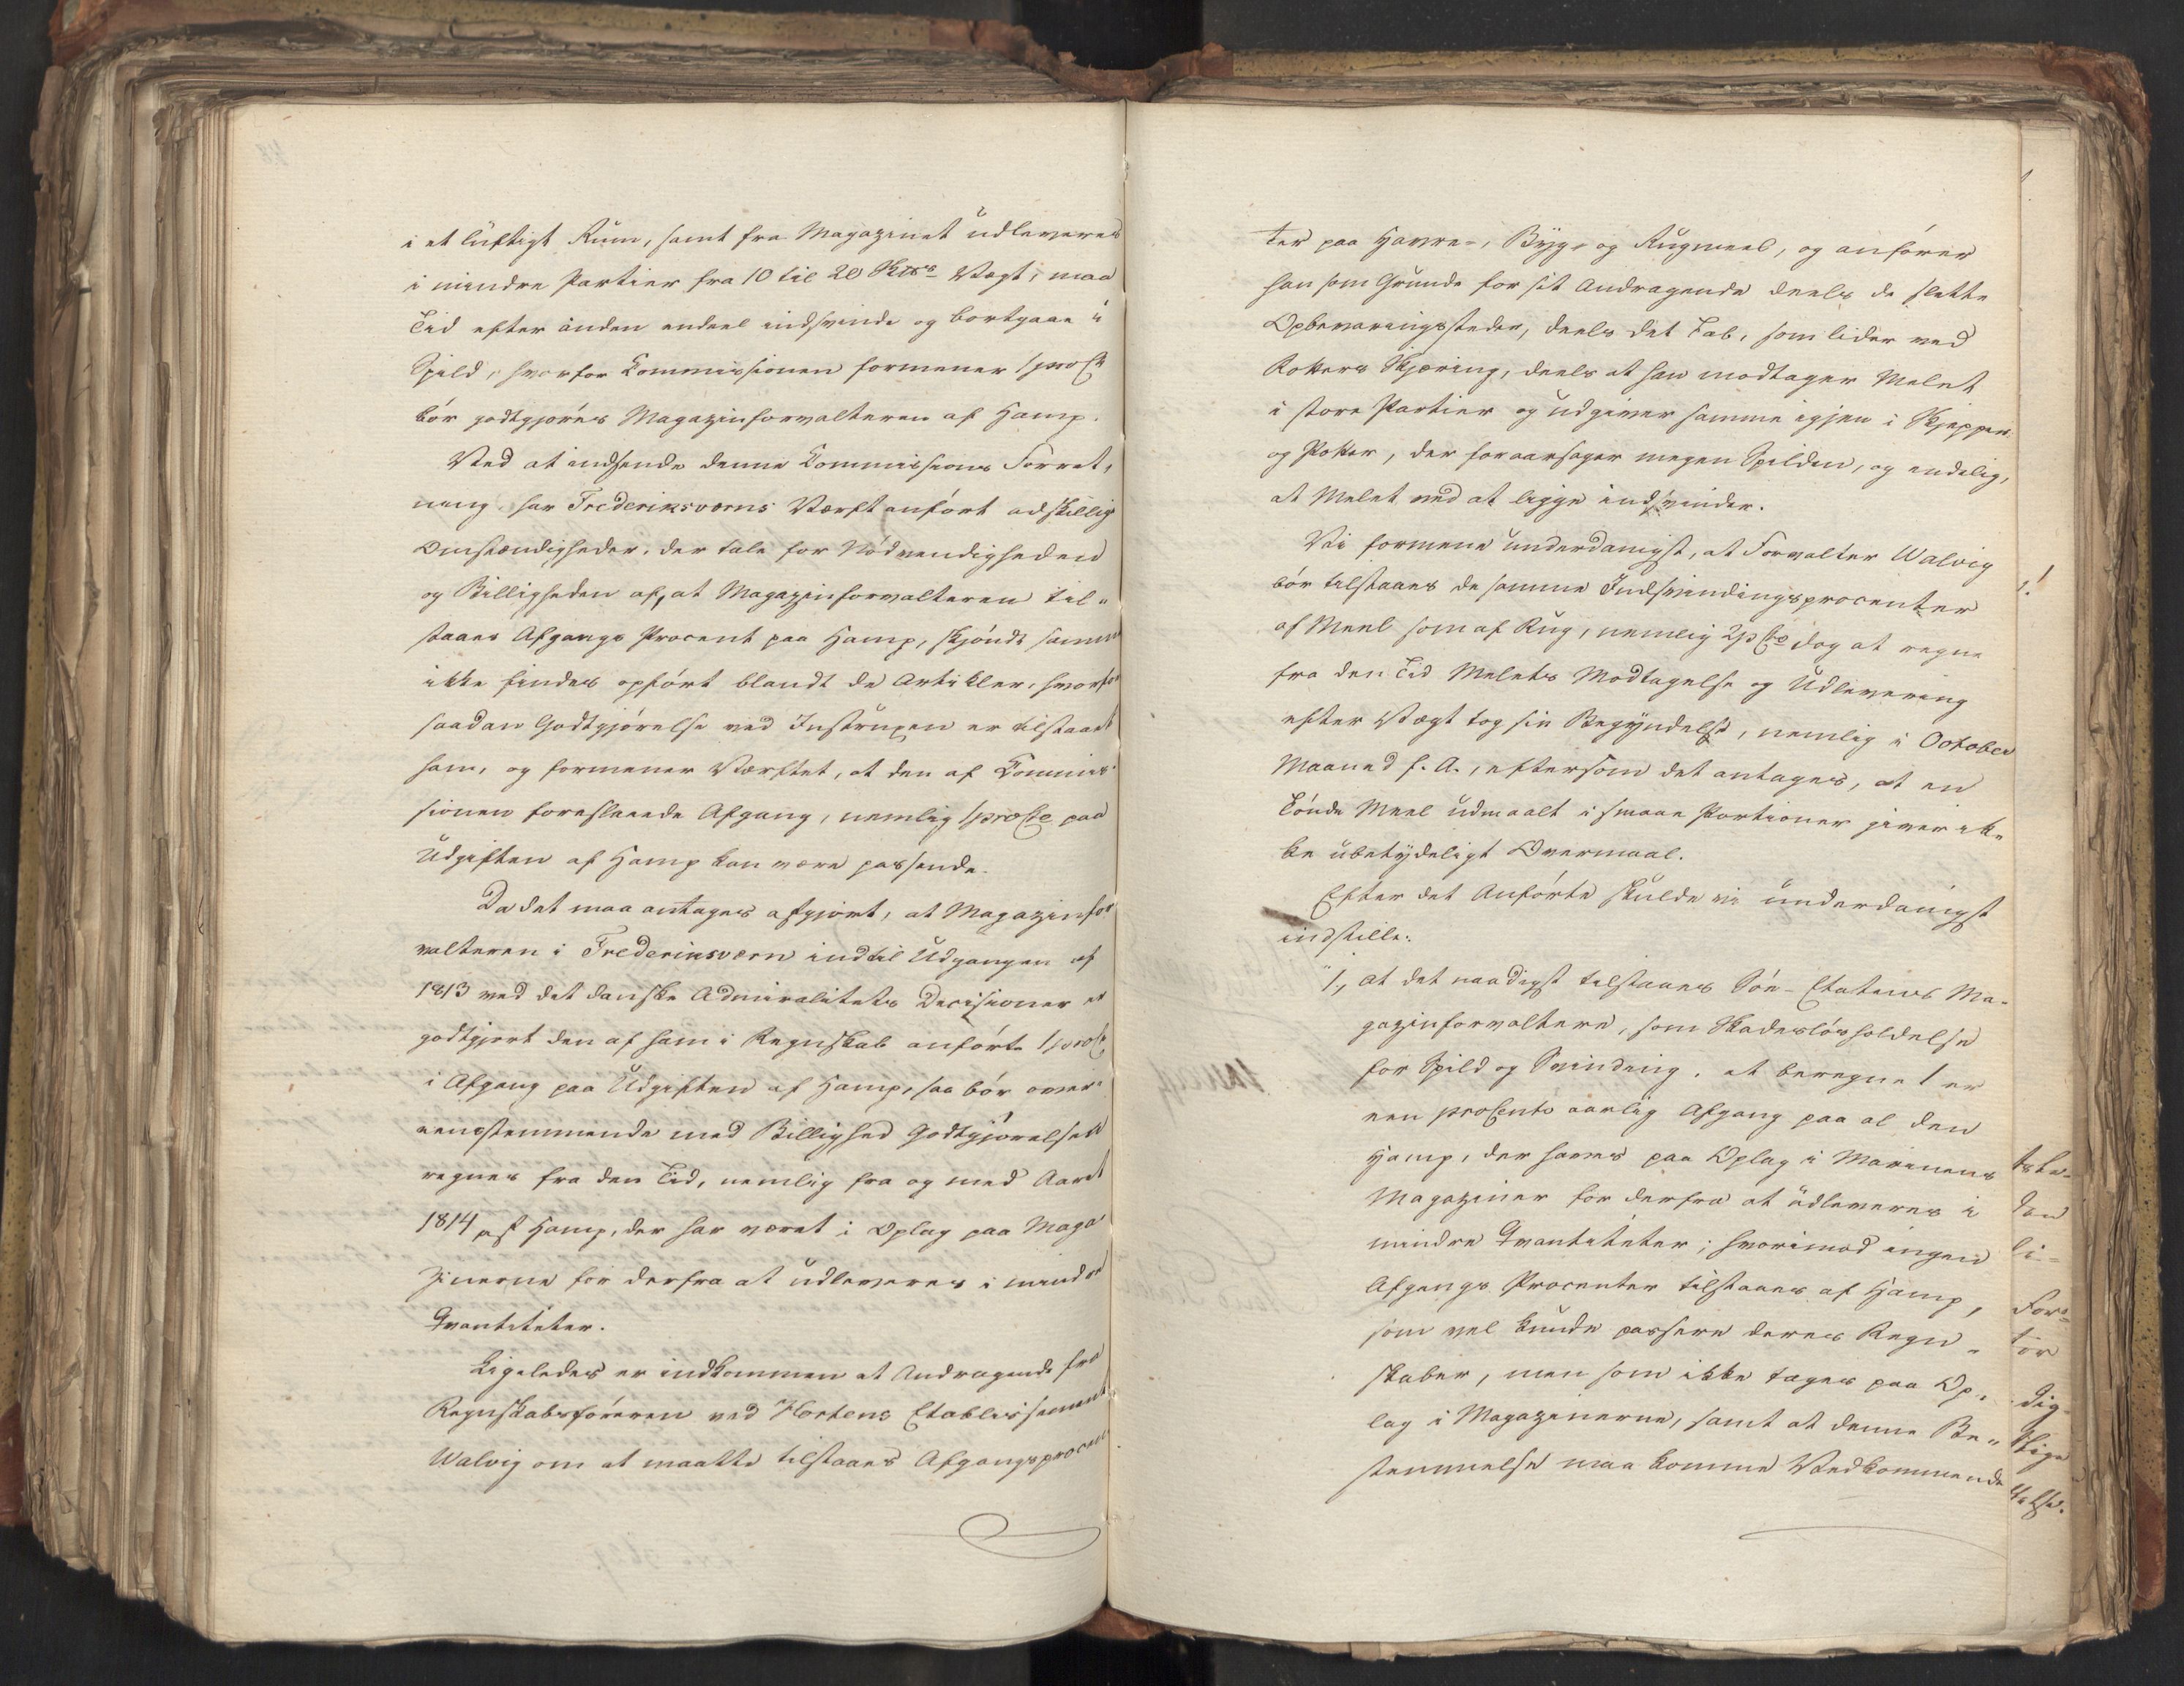 i et luftigt Rum, samt fra Magazinet udleveres
i mindre Partier fra 10 til 20 Vægt, maa
Tid efter anden endeel indsvinde og bortgaae i
Spild, hvorfor Commissionen formener 1 proCt
bør godtgjøres Magazinforvalteren af Hamp.
Ved at indsende denne Commissions Forret,
ning, har Frederiksværns Værft anført adskillige
Omstændigheder, der tale for Nødvendigheden
og Billigheden af, at Magazinforvalteren til-
staaes Afgangs Procent paa Hamp, skjøndt samme
ikke findes opført blandt de Artikler, hvorfor
saadan Godtgjørelse ved Instruxen er tilstaaet
ham, og formener Værftet, at den af Commis-
sionen foreslaaede Afgang, nemlig 1 proCto paa
Udgiften af Hamp kan være passende.
Da det maa antages afgjort, at Magazinfor
valteren i Frederiksværn indtil Udgangen af
1813 ved det danske Admiralitets Decisioner er
godtgjort den af ham i Regnskab anførte 1 proCt
i Afgang paa Udgiften af Hamp, saa bør over-
eensstemmende med Billighed Godtgjørelsen
regnes fra den Tid, nemlig fra og med Aaret
1814 af Hamp, der har været i Oplag paa Maga-
zinerne for derfra at udleveres i mindre
Qvantiteter.
Ligeledes er indkommen et Andragende fra
Regnskabsføreren ved Hortens Etablissement
Walvig om at maatte tilstaaes Afgangsprocen
ter paa Havre-, Byg- og Rugmeel, og anfører
han som Grunde for sit Andragende deels de slette
Opbevaringssteder, deels det Tab, som lider ved
Rotters Skjæring, deels at han modtager Melet
i store Partier og udgiver samme igjen i Skjepper
og Potter, der foraarsager megen Spilden, og endelig,
at Melet ved at ligge indsvinder.
Vi formene underdanigst, at Forvalter Walvig
bør tilstaaes de samme Indsvindingsprocenter
af Meel som af Rug, nemlig 2 pCto dog at regne
fra den Tid Melets Modtagelse og Udlevering
efter Vægt tog sin Begyndelse, nemlig i October
Maaned f. A., eftersom det antages, at en
Tønde Meel udmaalt i smaae Portioner giver ik-
ke ubetydeligt Overmaal.
Efter det Anførte skulde vi underdanigst
indstille:
"1, at det naadigst tilstaaes Søe-Etatens Ma-
gazinforvaltere, som Skadesløsholdelse
for Spild og Svinding, at beregne 1 er
een proCento aarlig Afgang paa al den
Hamp, der haves paa Oplag i Marinens
Magaziner for derfra at udleveres i
mindre Qvantiteter; hvorimod ingen
Afgangs Procenter tilstaaes af Hamp,
som vel kunde passere deres Regn-
skaber, men som ikke tages paa Op-
lag i Magazinerne, samt at denne Be-
stemmelse maa komme Vedkommende